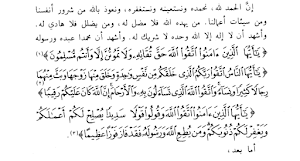 إنَّ الحمد لله، نحمده ونستعينه ونستغفره، ونعوذ بالله من شرور أنفسنا
ومن سيئات أعمالنا. من يهده الله فلا مضل له، ومن يضلل فلا هادي له.
وأشهد أن لا إله إلا الله وحده لا شريك له. وأشهد أن محمدا عبده ورسوله
﴿يَٰٓأَيُّهَا ٱلَّذِينَ ءَامَنُوا۟ ٱتَّقُوا۟ ٱللَّهَ حَقَّ تُقَاتِهِۦ وَلَا تَمُوتُنَّ إِلَّا وَأَنتُم مُّسْلِمُونَ﴾(١)
﴿يَٰٓأَيُّهَا ٱلنَّاسُ ٱتَّقُوا۟ رَبَّكُمُ ٱلَّذِى خَلَقَكُم مِّن نَّفْسٍ وَٰحِدَةٍ وَخَلَقَ مِنْهَا زَوْجَهَا وَبَثَّ مِنْهُمَا
رِجَالًا كَثِيرًا وَنِسَآءً وَٱتَّقُوا۟ ٱللَّهَ ٱلَّذِى تَسَآءَلُونَ بِهِۦ وَٱلْأَرْحَامَ إِنَّ ٱللَّهَ كَانَ عَلَيْكُمْ رَقِيبًا﴾
﴿يَٰٓأَيُّهَا ٱلَّذِينَ ءَامَنُوا۟ ٱتَّقُوا۟ ٱللَّهَ وَقُولُوا۟ قَوْلًا سَدِيدًا يُصْلِحْ لَكُمْ أَعْمَٰلَكُمْ
وَيَغْفِرْ لَكُمْ ذُنُوبَكُمْ وَمَن يُطِعِ ٱللَّهَ وَرَسُولَهُۥ فَقَدْ فَازَ فَوْزًا عَظِيمًا﴾(٣)
أما بعد،